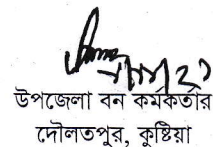 উপজেলা বন কর্মকর্তার
দৌলতপুর, কুষ্টিয়া